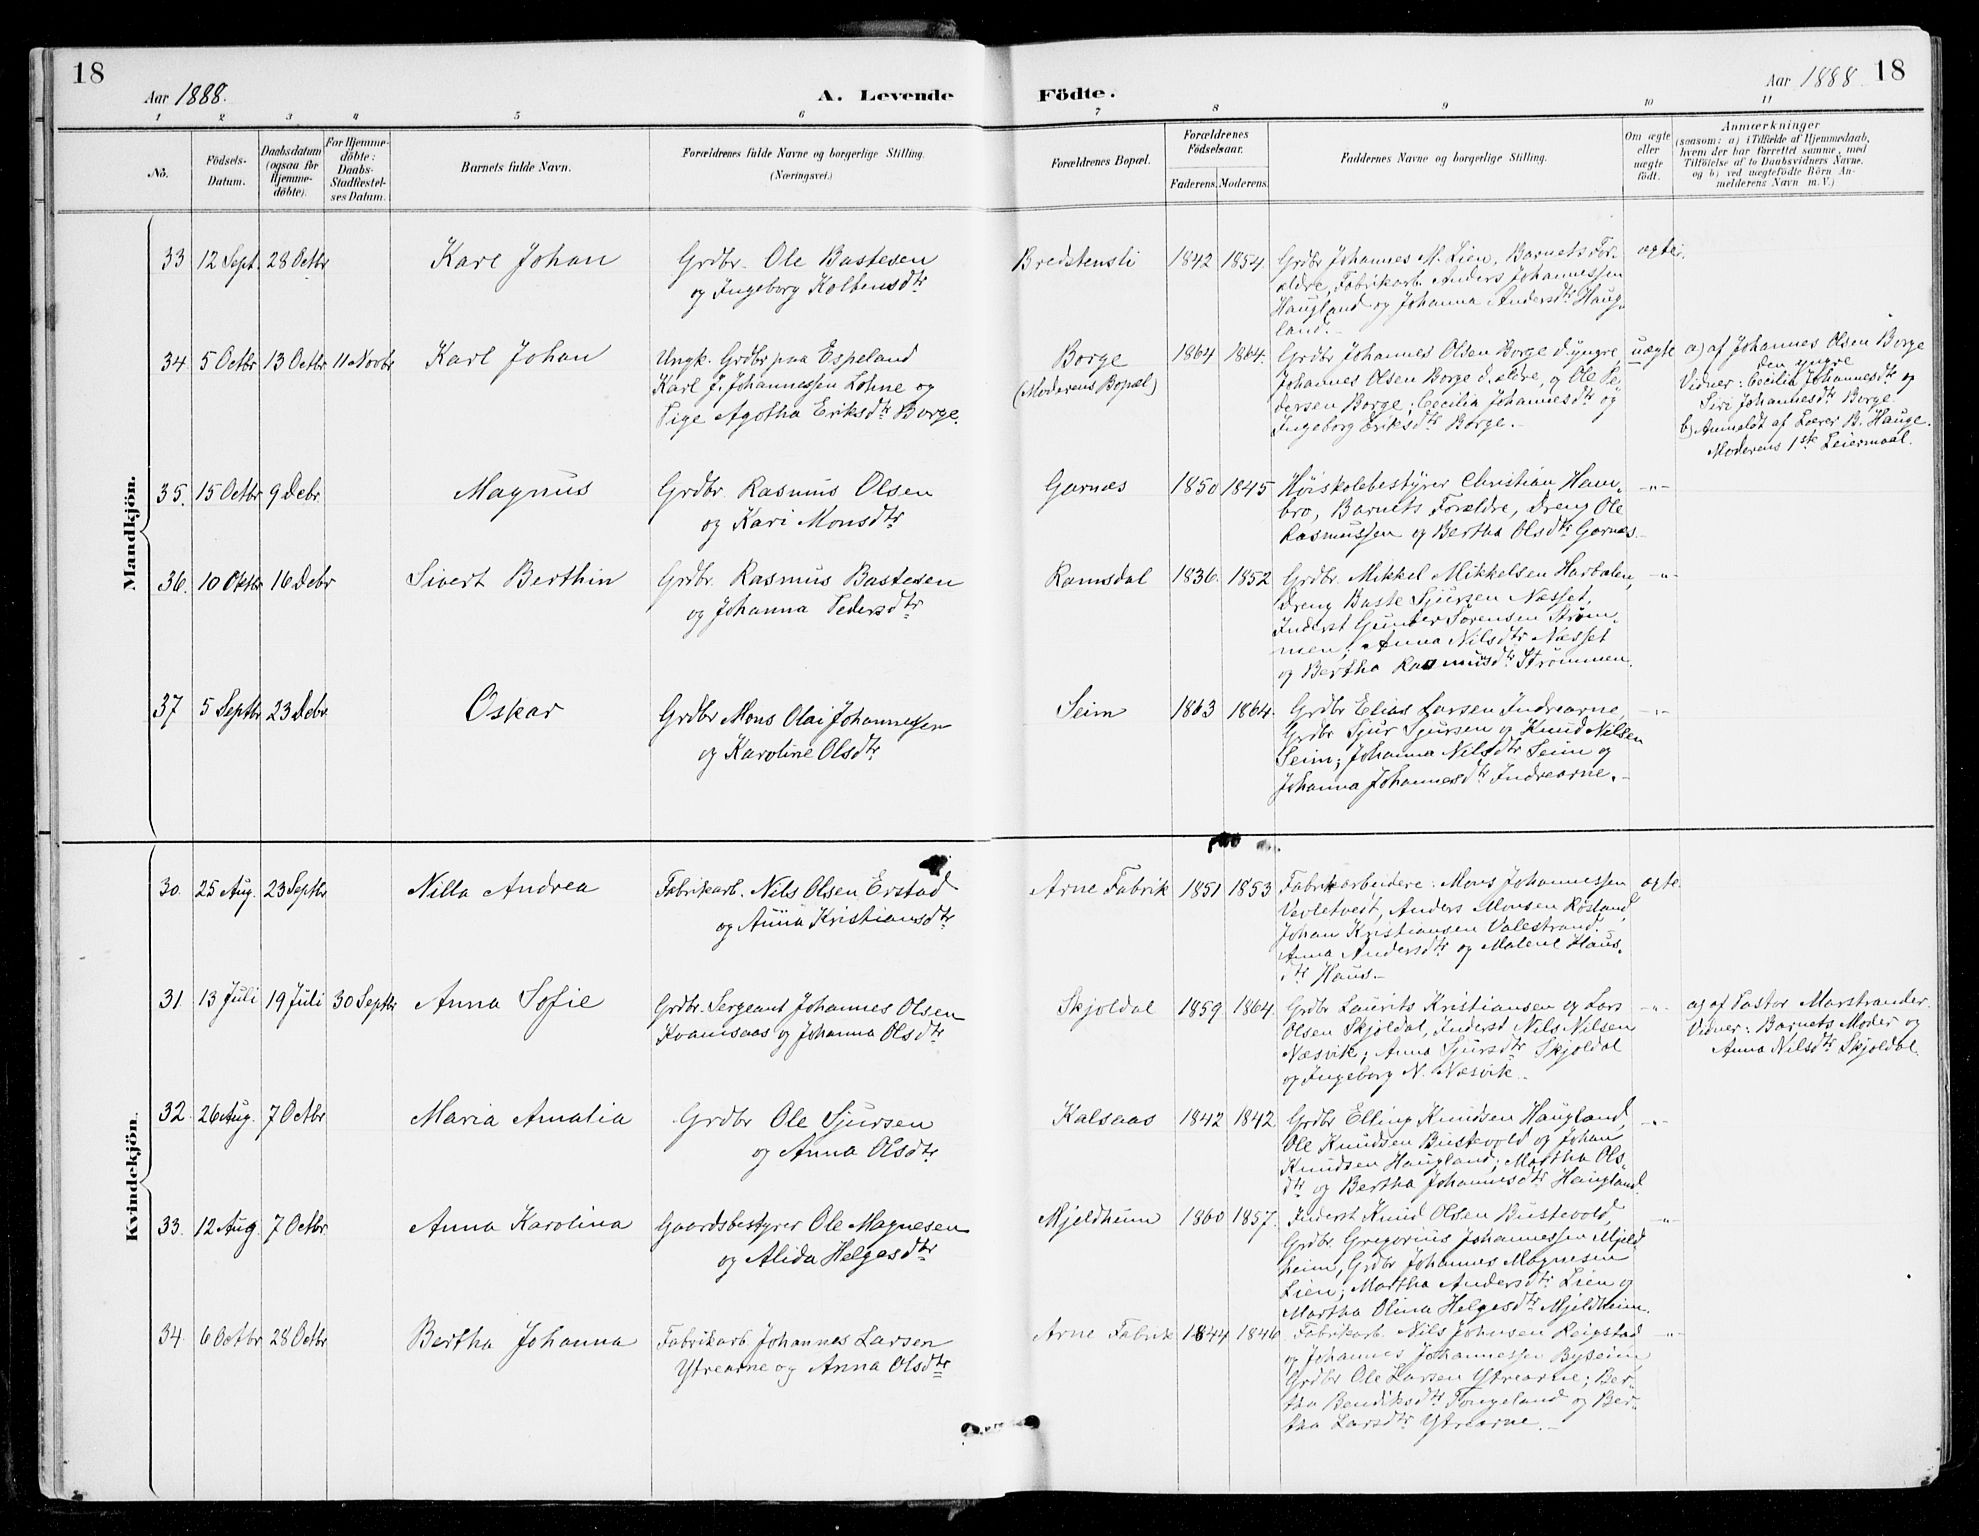 18
Aar 1888.
A. Levende
Födte.
Aar 1888.
18
1 2 3 4 5 6 7 8 9 10 11
No.
Födsels-
Datum.
Daabsdatum
(ogsaa for
Hjemme-
döbte).
For Hjemme-
döbte:
Daabs-
Stadfæstel-
ses Datum.
Barnets fulde Navn.
Forældrenes fulde Navne og borgerlige Stilling.
(Næringsvei.)
Forældrenes Bopæl.
Forældrenes
Födselsaar.
Faderens. Moderens.
Faddernes Navne og borgerlige Stilling.
Om ægte
eller
uægte
födt.
Anmærkninger
(saasom: a) i Tilfælde af Hjemmedaab,
hvem der har forrettet samme, med
Tilföielse af to Daabsvidners Navne.
og b) ved uægtefödte Börn An-
melderens Navn m. V.)
Mandkjön.
33 12 Sept. 28 Octbr Karl Johan
Grdbr. Ole Bastesen
og Ingeborg Koltensdtr
Bredstensli 1842 1854
Grdbr Johannes M. Lien, Barnets For-
ældre, Fabrikarb. Anders Johannessen
Haugland og Johanna Andersdtr Haug-
land.-
ægte.
34 5 Octbr 13 Octbr 11 Novbr Karl Johan
Ungk. Grdbr paa Espeland
Karl J. Johannessen Lohne og
Pige Agotha Eriksdtr Borge.
Borge
(Moderens Bopæl)
1864 1864.
Grdbr Johannes Olsen Borge d. yngre,
Johannes Olsen Borge d. ældre, og Ole Pe-
dersen Borge; Cecilia Johannesdtr og
Ingeborg Eriksdtr Borge.-
uægte
a) af Johannes Olsen Borge
den yngre
Vidner: Cecilia Johannesdtr og
Siri Johannesdtr Borge.
b) Anmeldt af Lærer B. Hauge.
Moderens 1ste Leiermaal.
35. 15 Octbr 9 Debr. Magnus
Grdbr. Rasmus Olsen
og Kari Monsdtr
Garnæs 1850 1845
Høiskolebestyrer Christian Ham-
bro, Barnets Forældre, Dreng Ole
Rasmussen og Bertha Olsdtr Garnæs.-
-"-
36. 10 Oktbr 16 Debr Sivert Berthin
Grdbr. Rasmus Bastesen
og Johanna Pedersdtr
Ramsdal 1836. 1852
Grdbr. Mikkel Mikkelsen Harbalen,
Dreng Baste Sjursen Næsset,
Inderst Gunder Sørensen Strøm-
men; Anna Nilsdtr Næsset
og Bertha Rasmusdtr Strømmen.
-"-
37 5 Septbr 23 Debr. Oskar
Grdbr Mons Olai Johannessen
og Karoline Olsdtr
Seim 1863 1864.
Grdbr Elias Larsen Indrearne,
Grdbr Sjur Sjursen og Knud Nilsen
Seim; Johanna Nilsdtr Seim og
Johanna Johannesdtr Indrearne.-
-"-
Kvindekjön.
30. 25 Aug. 23 Septbr Nilla Andrea
Fabrikarb. Nils Olsen Erstad
og Anna Kristiansdtr
Arne Fabrik 1851 1853
Fabrikarbeidere: Mons Johannessen
Vevletvedt, Anders Monsen Røsland,
Johan Kristiansen Valestrand.
Anna Andersdtr og Malene Haus-
dtr Haus.-
ægte.
31. 13 Juli 19 Juli 30 Septbr Anna Sofie
Grdbr. Sergeant Johannes Olsen
Kvamsaas og Johanna Olsdtr
Skjoldal 1859 1864.
Grdbr Laurits Kristiansen og Lars
Olsen Skjoldal, Inderst Nils Nilsen
Næsvik; Anna Sjursdtr Skjoldal
og Ingeborg N. Næsvik.-
-"-
a) af Pastor Marstrander.
Vidner: Barnets Moder og
Anna Nilsdtr Skjoldal.
32. 26 Aug. 7 Octbr Maria Amalia
Grdbr Ole Sjursen
og Anna Olsdtr
Kalsaas 1842 1842
Grdbr Elling Knudsen Haugland,
Ole Knudsen Bustevold og Johan
Knudsen Haugland; Martha Ols-
dtr og Bertha Johannesdtr Haugland.
-"-
33. 12 Aug. 7 Octbr Anna Karolina
Gaardsbestyrer Ole Magnesen
og Alida Helgesdtr
Mjeldheim 1860 1857.
Inderst Knud Olsen Bustevold,
Grdbr Gregorius Johannessen Mjeld-
heim, Grdbr Johannes Magnesen
Lien; Martha Andersdtr Lien og
Martha Olina Helgesdtr Mjeldheim.
-"-
34. 6 Octbr 28 Octbr Bertha Johanna
Fabrikarb Johannes Larsen
Ytrearne og Anna Olsdtr
Arne Fabrik 1844 1846.
Fabrikarb. Nils Johnsen Reigstad
og Johannes Johannessen Byseim,
Grdbr Ole Larsen Ytrearne; Ber-
tha Bendiksdtr Tongeland og Ber-
tha Larsdtr Ytrearne.-
-"-